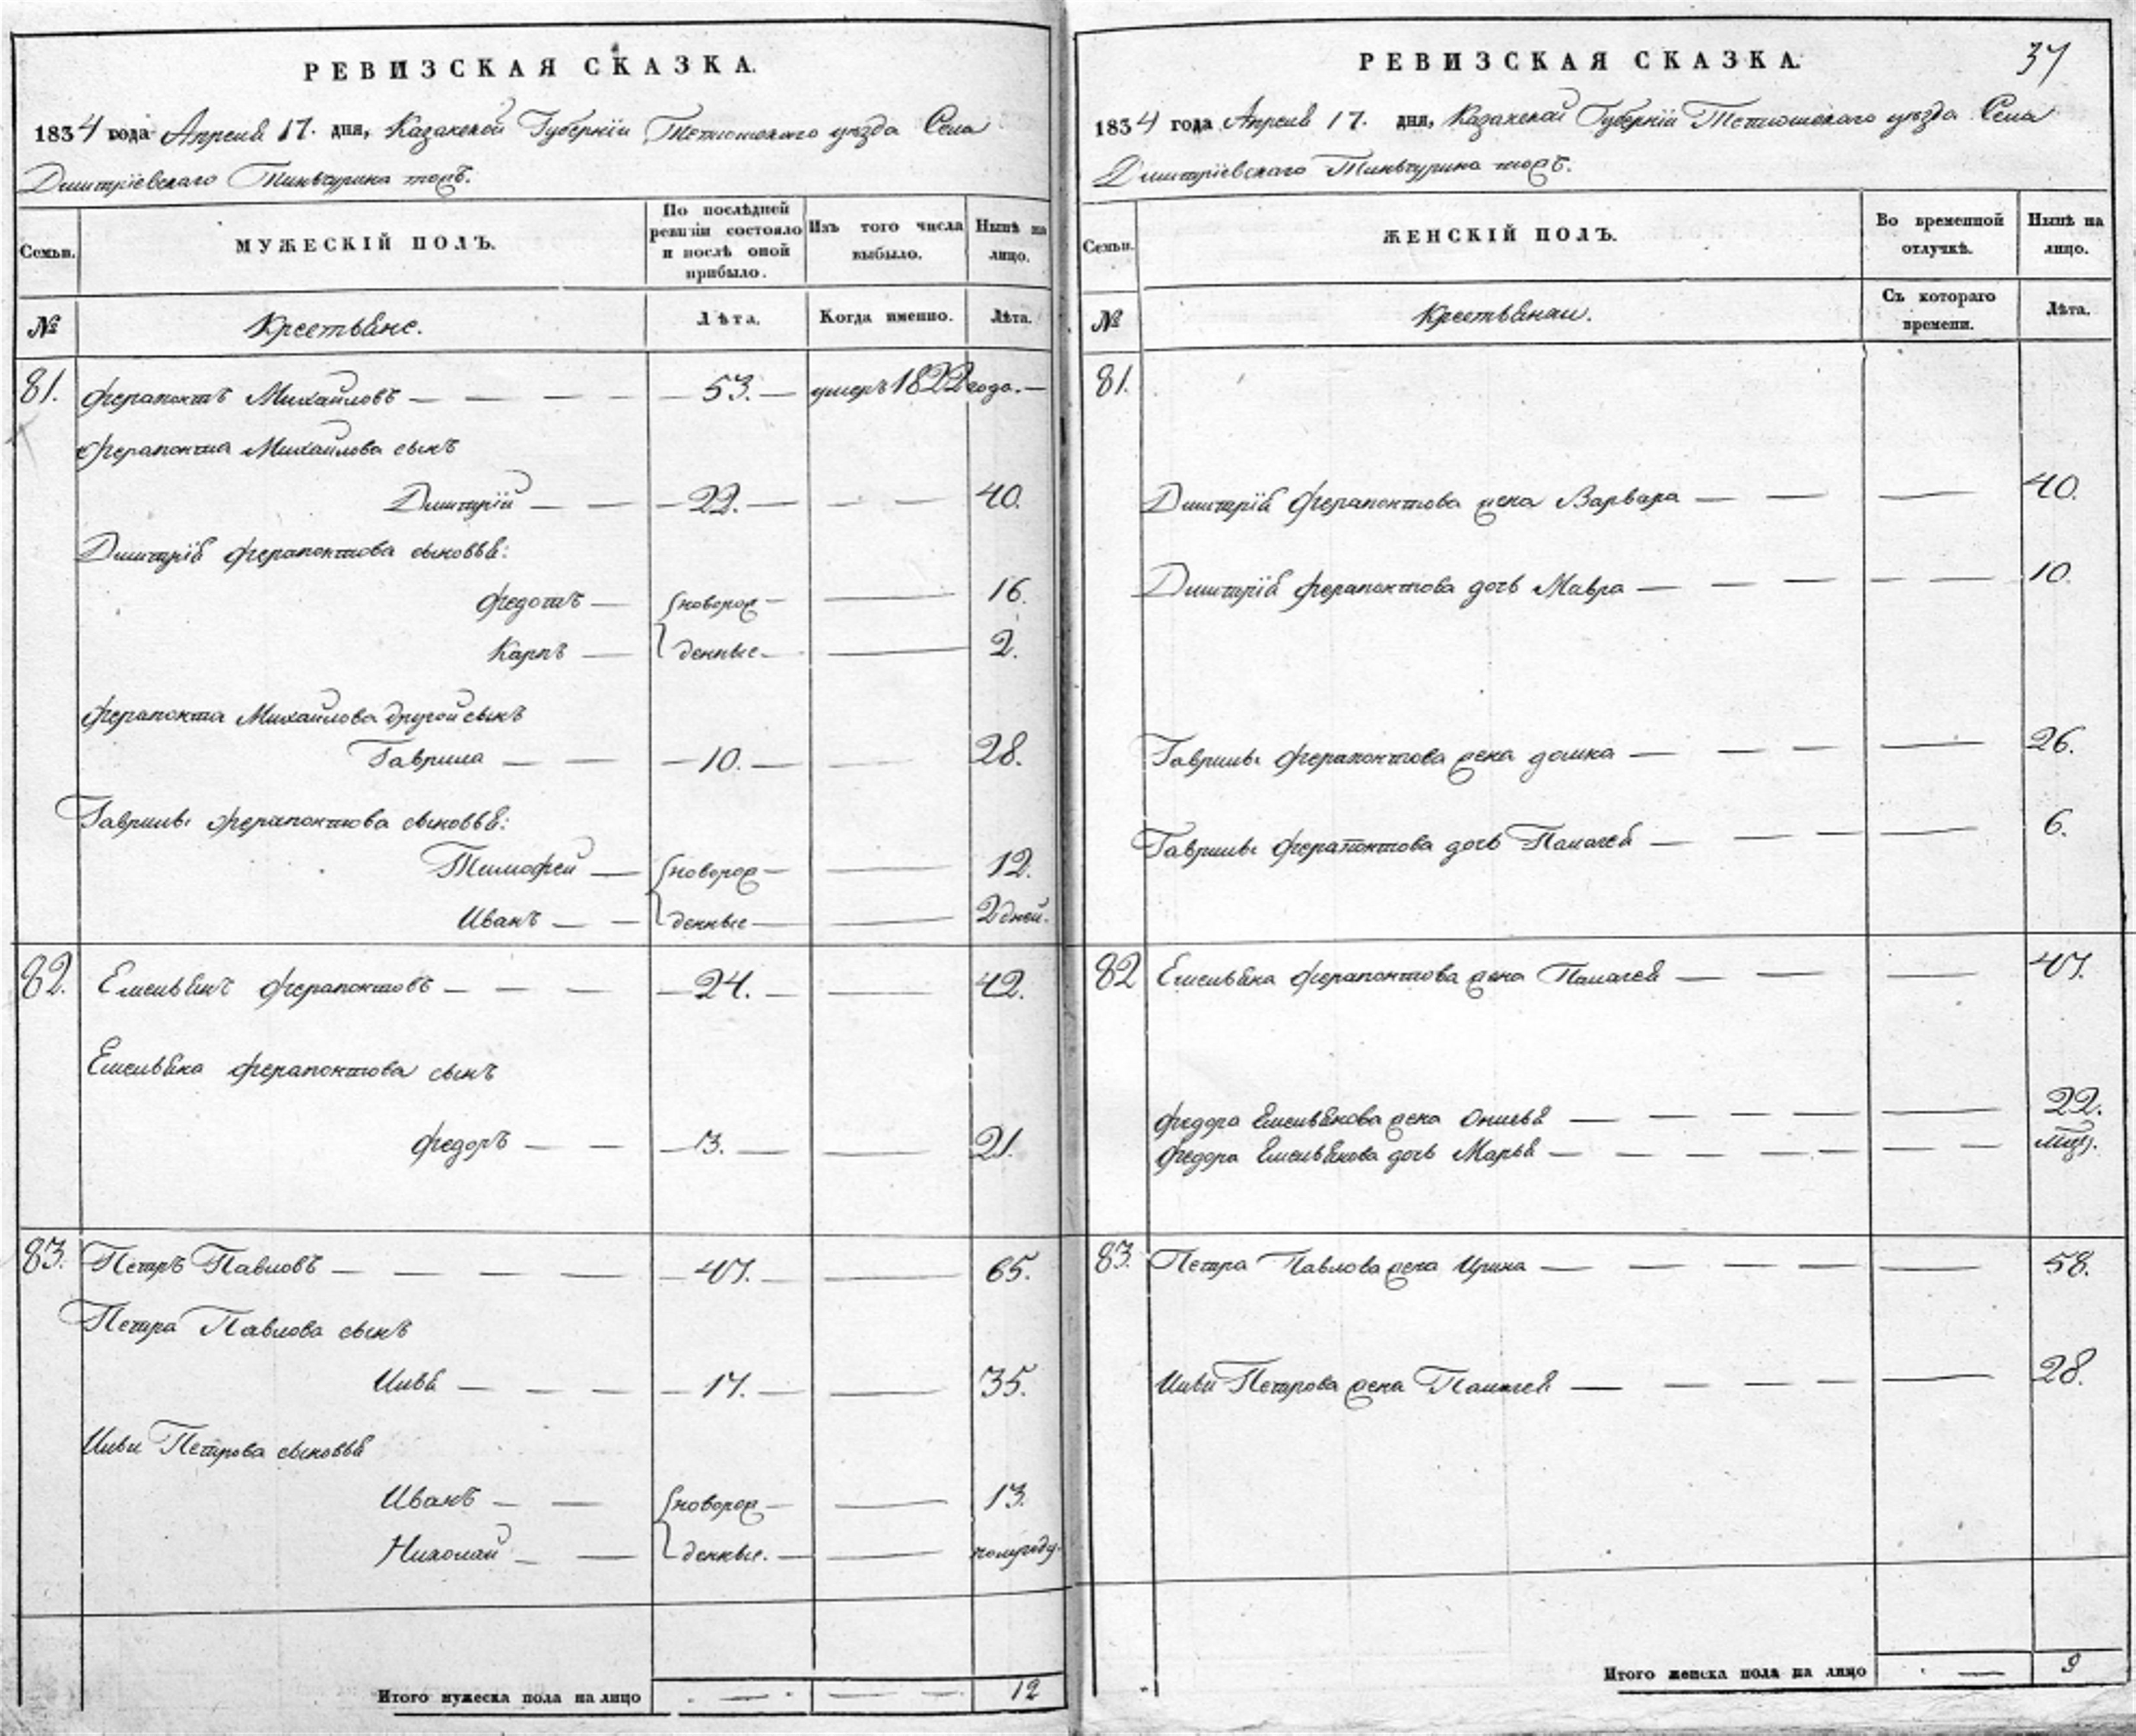 РЕВИЗСКАЯ СКАЗКА.
1834 года Апреля 17. дня, Казанской Губернiи Тетюшскаго уѣзда Села
Дмитрiевскаго Тинвчурина тожъ.
Семьи.
МУЖЕСКIЙ ПОЛЪ.
По послѣдней ревизiи состояло и послѣ оной прибыло.
Изъ того числа выбыло.
Нынѣ на лицо.
№
Крестьяне.
Лѣта.
Когда именно.
Лѣта.
81. Ферапонтъ Михайловъ — 53. — умеръ 1822 года. —
Ферапонта Михайлова сынъ
Дмитрiй — 22. — 40.
Дмитрiя Ферапонтова сыновья:
Федотъ — новорож — 16.
Карпъ — денные — 2.
Ферапонта Михайлова другой сынъ
Гаврила — 10. — 28.
Гаврилы Ферапонтова сыновья:
Тимофей — новорож — 12.
Иванъ — денные — 2 дней.
82. Емельянъ Ферапонтовъ — 24. — 42.
Емельяна Ферапонтова сынъ
Федоръ — 3. — 21.
83. Петръ Павловъ — 47. — 65.
Петра Павлова сынъ
Илья — 17. — 35.
Ильи Петрова сыновья
Иванъ — новорож — 13.
Николай — денные. — полугоду.
Итого мужеска пола на лицо 12
РЕВИЗСКАЯ СКАЗКА.
37
1834 года Апреля 17. дня, Казанской Губернiи Тетюшскаго уѣзда Села
Дмитрiевскаго Тинвчурина тожъ.
Семьи.
ЖЕНСКIЙ ПОЛЪ.
Во временной отлучкѣ.
Нынѣ на лицо.
№
Крестьянки.
Съ котораго времени.
Лѣта.
81.
Дмитрiя Ферапонтова жена Варвара — 40.
Дмитрiя Ферапонтова дочь Мавра — 10.
Гаврилы Ферапонтова жена домна — 26.
Гаврилы Ферапонтова дочь Палагея — 6.
82 Емельяна Ферапонтова жена Палагея — 47.
Федора Емельянова жена Онисья — 22.
Федора Емельянова дочь Марья —
83. Петра Павлова жена Ирина — 58.
Ильи Петрова жена Палагея — 28.
Итого женска пола на лицо — 9